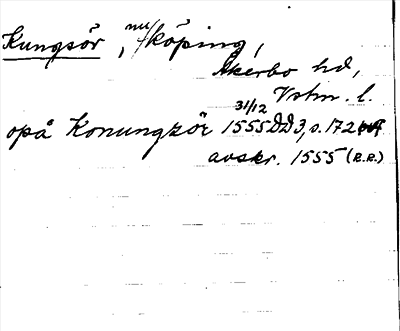 Kungsör, nu köping,
Åkerbo hd,
Vstm. l.
31/12
opå Konungzör 1555 DD3, s. 172
avskr. 1555 (R.R.)